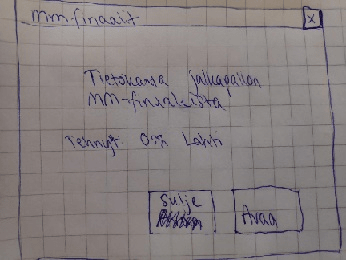 MM-finaalit
X
Tietokanta jalkapallon
MM-finaaleista
Tehnyt: Lahti
Sulje
Avaa